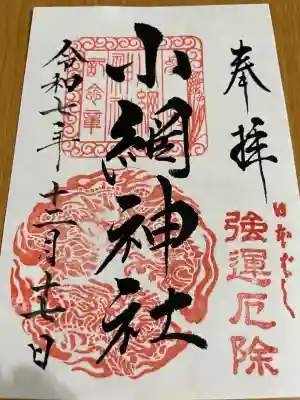 奉拝
日本ばし
強運厄除
小網神社
令和七年十一月十七日